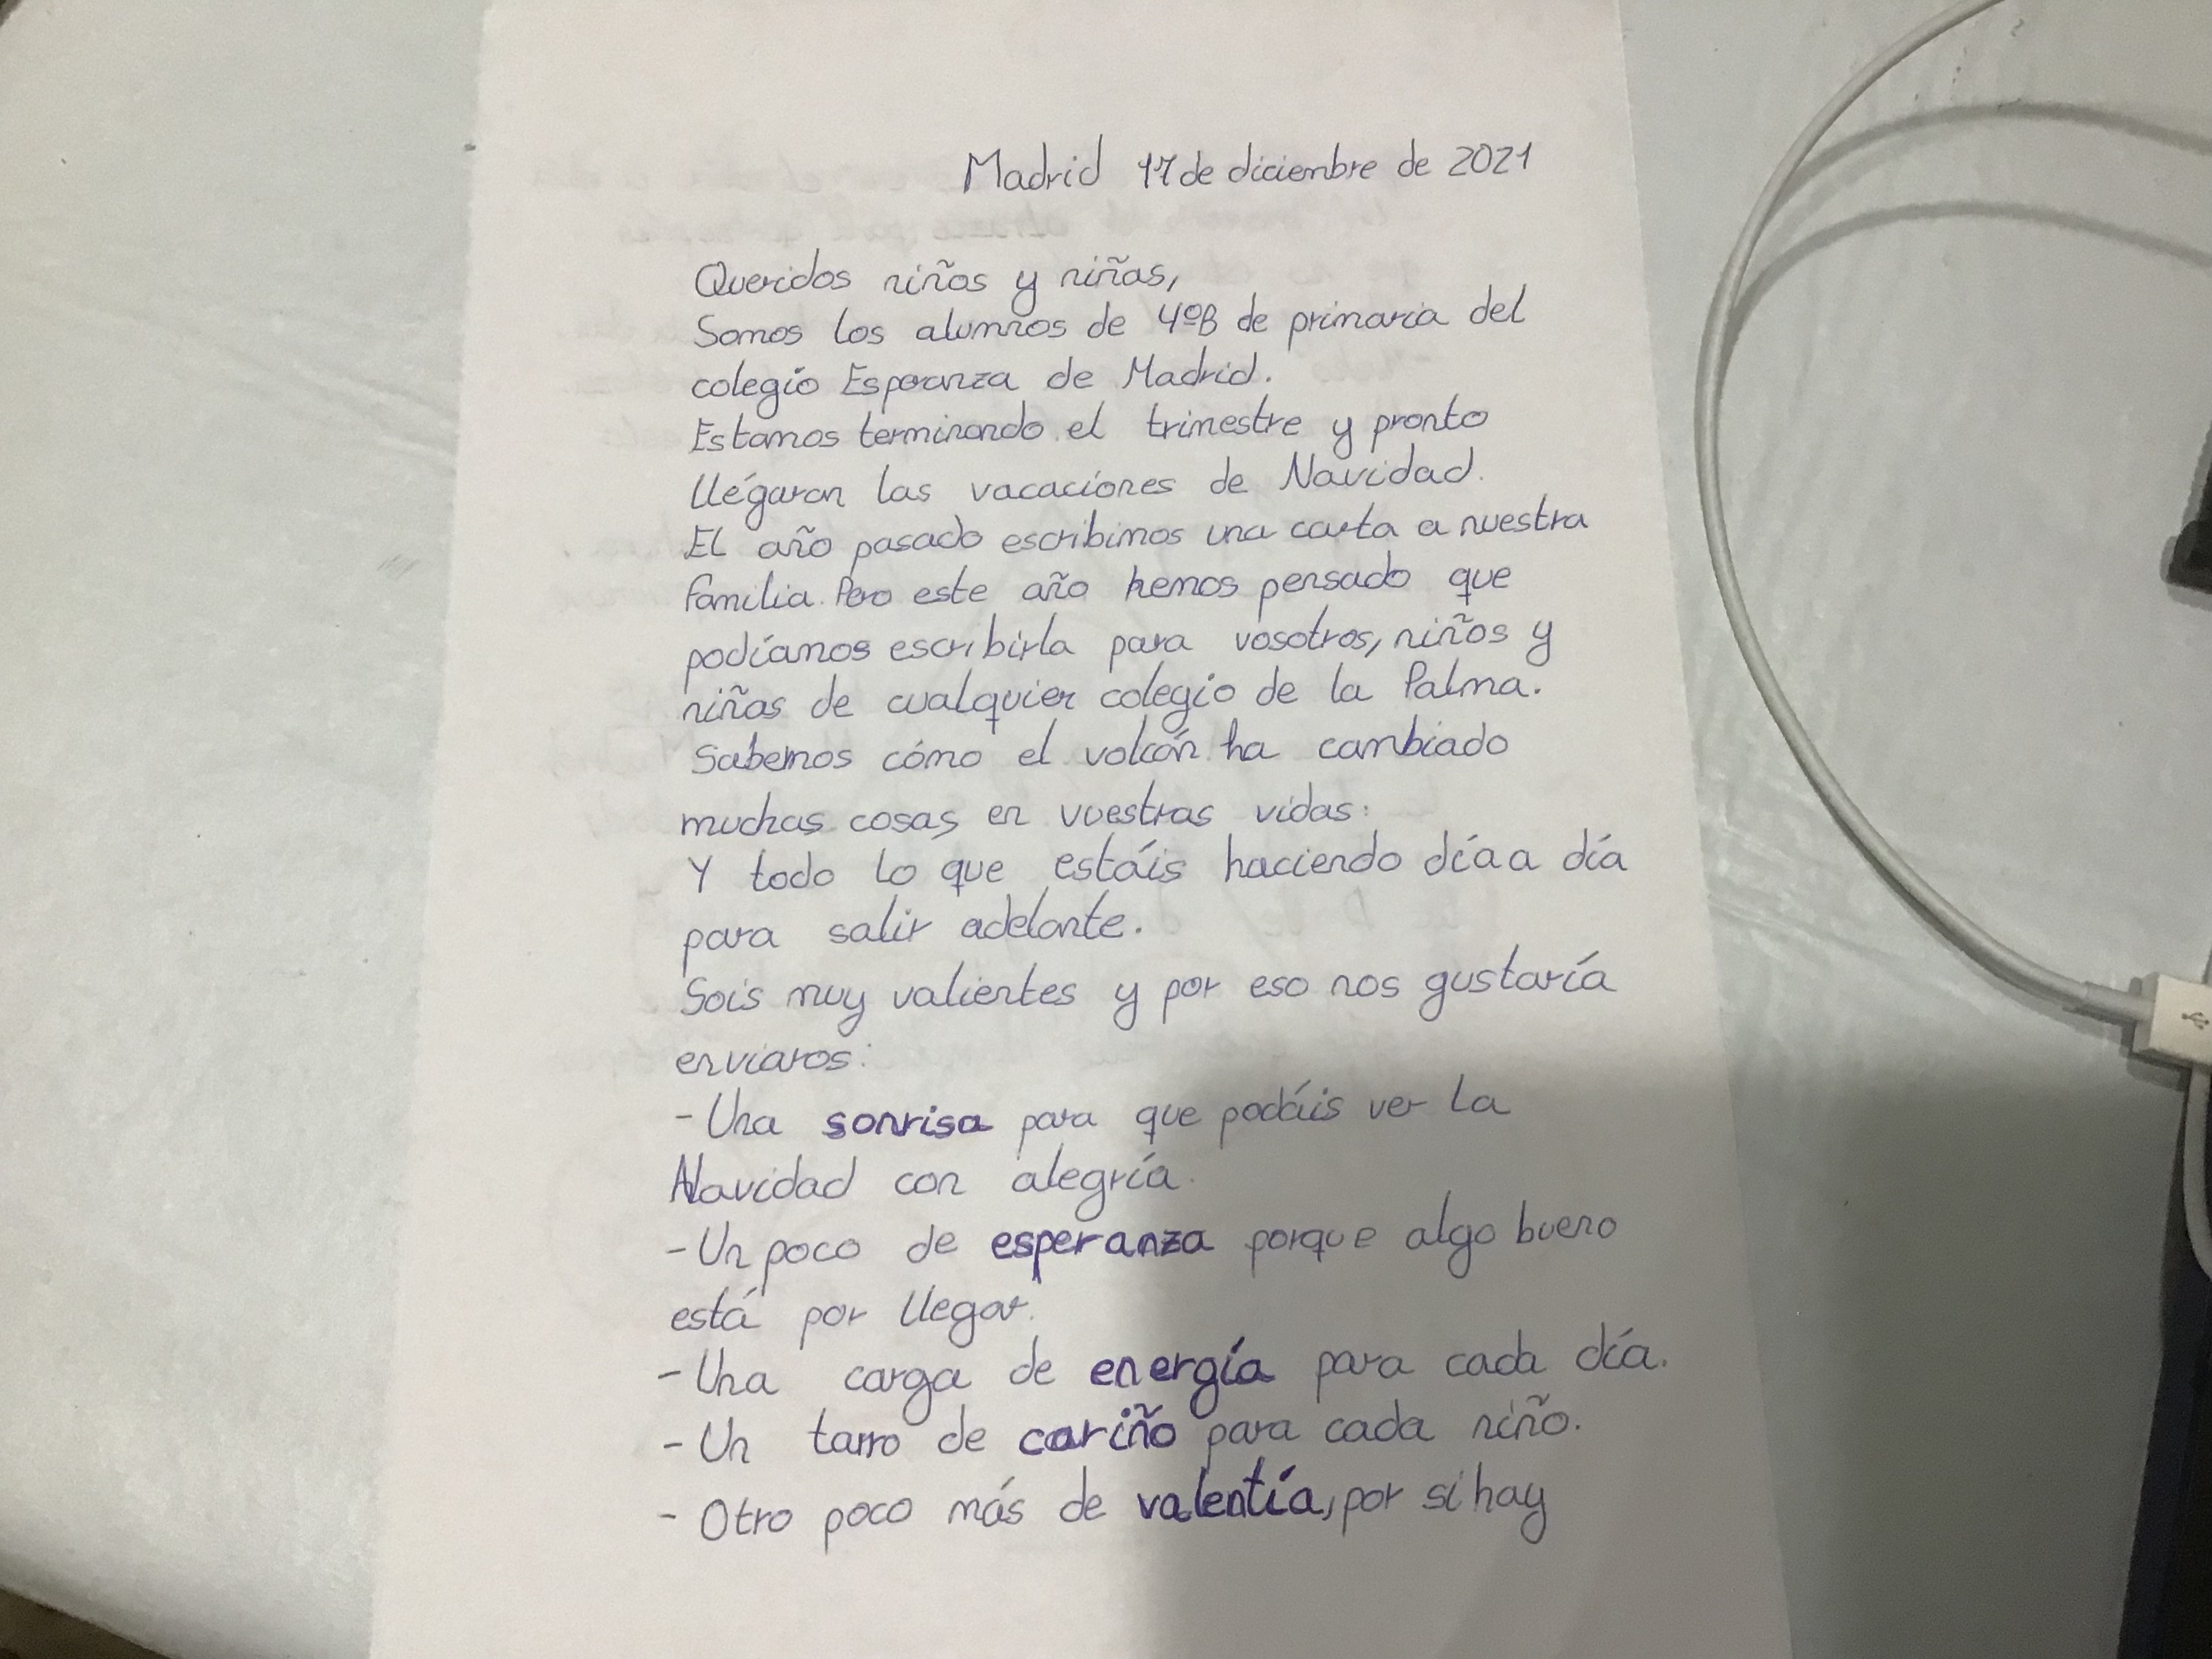 Madrid 17 de diciembre de 2021
Queridos niños y niñas,
Somos los alumnos de 4ºB de primaria del
colegio Esperanza de Madrid.
Estamos terminando el trimestre y pronto
llégaran las vacaciones de Navidad.
El año pasado escribimos una carta a nuestra
familia. Pero este año hemos pensado que
podíamos escribirla para vosotros, niños y
niñas de cualquier colegio de la Palma.
Sabemos cómo el volcán ha cambiado
muchas cosas en vuestras vidas:
Y todo lo que estáis haciendo día a día
para salir adelante.
Sois muy valientes y por eso nos gustaría
enviaros:
- Una sonrisa para que podáis ver la
Navidad con alegría.
- Un poco de esperanza porque algo bueno
está por llegar.
- Una carga de energía para cada día.
- Un tarro de cariño para cada niño.
- Otro poco más de valentía, por si hay